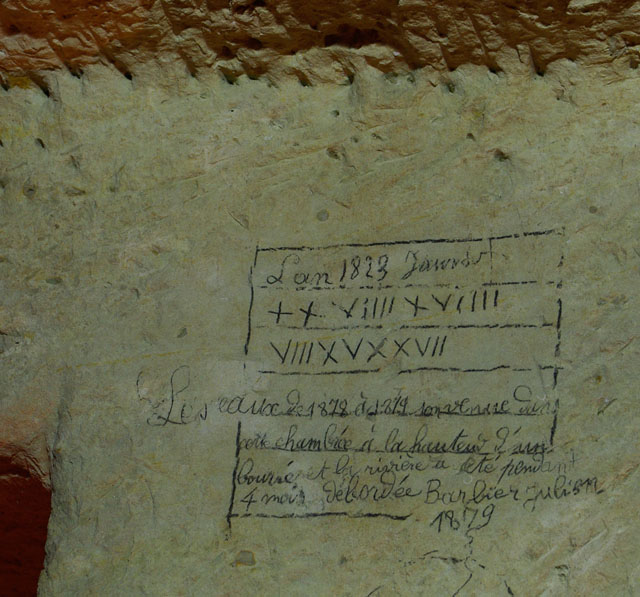 L'an 1823 Janvier
++ VIIII +VIIIII
VIIIXVXXVII
Les eaux de 1878 à 1879 son venue dans
cette chambée à la hauteur d'un
bourré et la rivière a été pendant
4 mois débordée Barbier Julien
1879